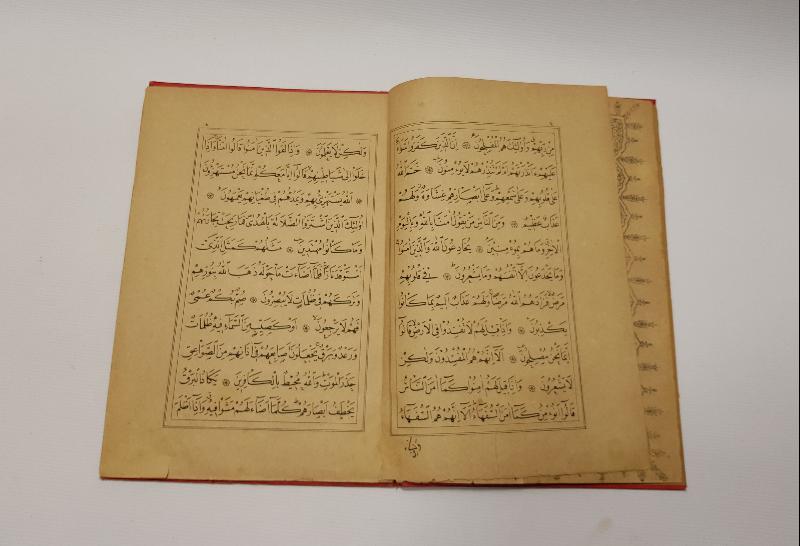 مِنْ رَبِّهِمْ وَأُولٰئِكَ هُمُ الْمُفْلِحُونَ ۞ إِنَّ الَّذِينَ كَفَرُوا سَوَاءٌ
عَلَيْهِمْ ءَأَنْذَرْتَهُمْ أَمْ لَمْ تُنْذِرْهُمْ لَا يُؤْمِنُونَ ۞ خَتَمَ اللّٰهُ
عَلَى قُلُوبِهِمْ وَعَلَى سَمْعِهِمْ وَعَلَى أَبْصَارِهِمْ غِشَاوَةٌ وَلَهُمْ
عَذَابٌ عَظِيمٌ ۞ وَمِنَ النَّاسِ مَنْ يَقُولُ اٰمَنَّا بِاللّٰهِ وَبِالْيَوْمِ
الْاٰخِرِ وَمَا هُمْ بِمُؤْمِنِينَ ۞ يُخَادِعُونَ اللّٰهَ وَالَّذِينَ اٰمَنُوا
وَمَا يَخْدَعُونَ إِلَّا أَنْفُسَهُمْ وَمَا يَشْعُرُونَ ۞ فِي قُلُوبِهِمْ
مَرَضٌ فَزَادَهُمُ اللّٰهُ مَرَضًا وَلَهُمْ عَذَابٌ أَلِيمٌ بِمَا كَانُوا
يَكْذِبُونَ ۞ وَإِذَا قِيلَ لَهُمْ لَا تُفْسِدُوا فِي الْأَرْضِ قَالُوا
إِنَّمَا نَحْنُ مُصْلِحُونَ ۞ أَلَا إِنَّهُمْ هُمُ الْمُفْسِدُونَ وَلٰكِنْ
لَا يَشْعُرُونَ ۞ وَإِذَا قِيلَ لَهُمْ اٰمِنُوا كَمَا اٰمَنَ النَّاسُ
قَالُوا أَنُؤْمِنُ كَمَا اٰمَنَ السُّفَهَاءُ أَلَا إِنَّهُمْ هُمُ السُّفَهَاءُ
وَلٰكِنْ لَا يَعْلَمُونَ ۞ وَإِذَا لَقُوا الَّذِينَ اٰمَنُوا قَالُوا اٰمَنَّا وَإِذَا
خَلَوْا إِلَى شَيَاطِينِهِمْ قَالُوا إِنَّا مَعَكُمْ إِنَّمَا نَحْنُ مُسْتَهْزِؤُنَ
۞ اَللّٰهُ يَسْتَهْزِئُ بِهِمْ وَيَمُدُّهُمْ فِي طُغْيَانِهِمْ يَعْمَهُونَ ۞
أُولٰئِكَ الَّذِينَ اشْتَرَوُا الضَّلَالَةَ بِالْهُدَى فَمَا رَبِحَتْ تِجَارَتُهُمْ
وَمَا كَانُوا مُهْتَدِينَ ۞ مَثَلُهُمْ كَمَثَلِ الَّذِي
اسْتَوْقَدَ نَارًا فَلَمَّا أَضَاءَتْ مَا حَوْلَهُ ذَهَبَ اللّٰهُ بِنُورِهِمْ
وَتَرَكَهُمْ فِي ظُلُمَاتٍ لَا يُبْصِرُونَ ۞ صُمٌّ بُكْمٌ عُمْيٌ
فَهُمْ لَا يَرْجِعُونَ ۞ أَوْ كَصَيِّبٍ مِنَ السَّمَاءِ فِيهِ ظُلُمَاتٌ
وَرَعْدٌ وَبَرْقٌ يَجْعَلُونَ أَصَابِعَهُمْ فِي اٰذَانِهِمْ مِنَ الصَّوَاعِقِ
حَذَرَ الْمَوْتِ وَاللّٰهُ مُحِيطٌ بِالْكَافِرِينَ ۞ يَكَادُ الْبَرْقُ
يَخْطَفُ أَبْصَارَهُمْ كُلَّمَا أَضَاءَ لَهُمْ مَشَوْا فِيهِ وَإِذَا أَظْلَمَ